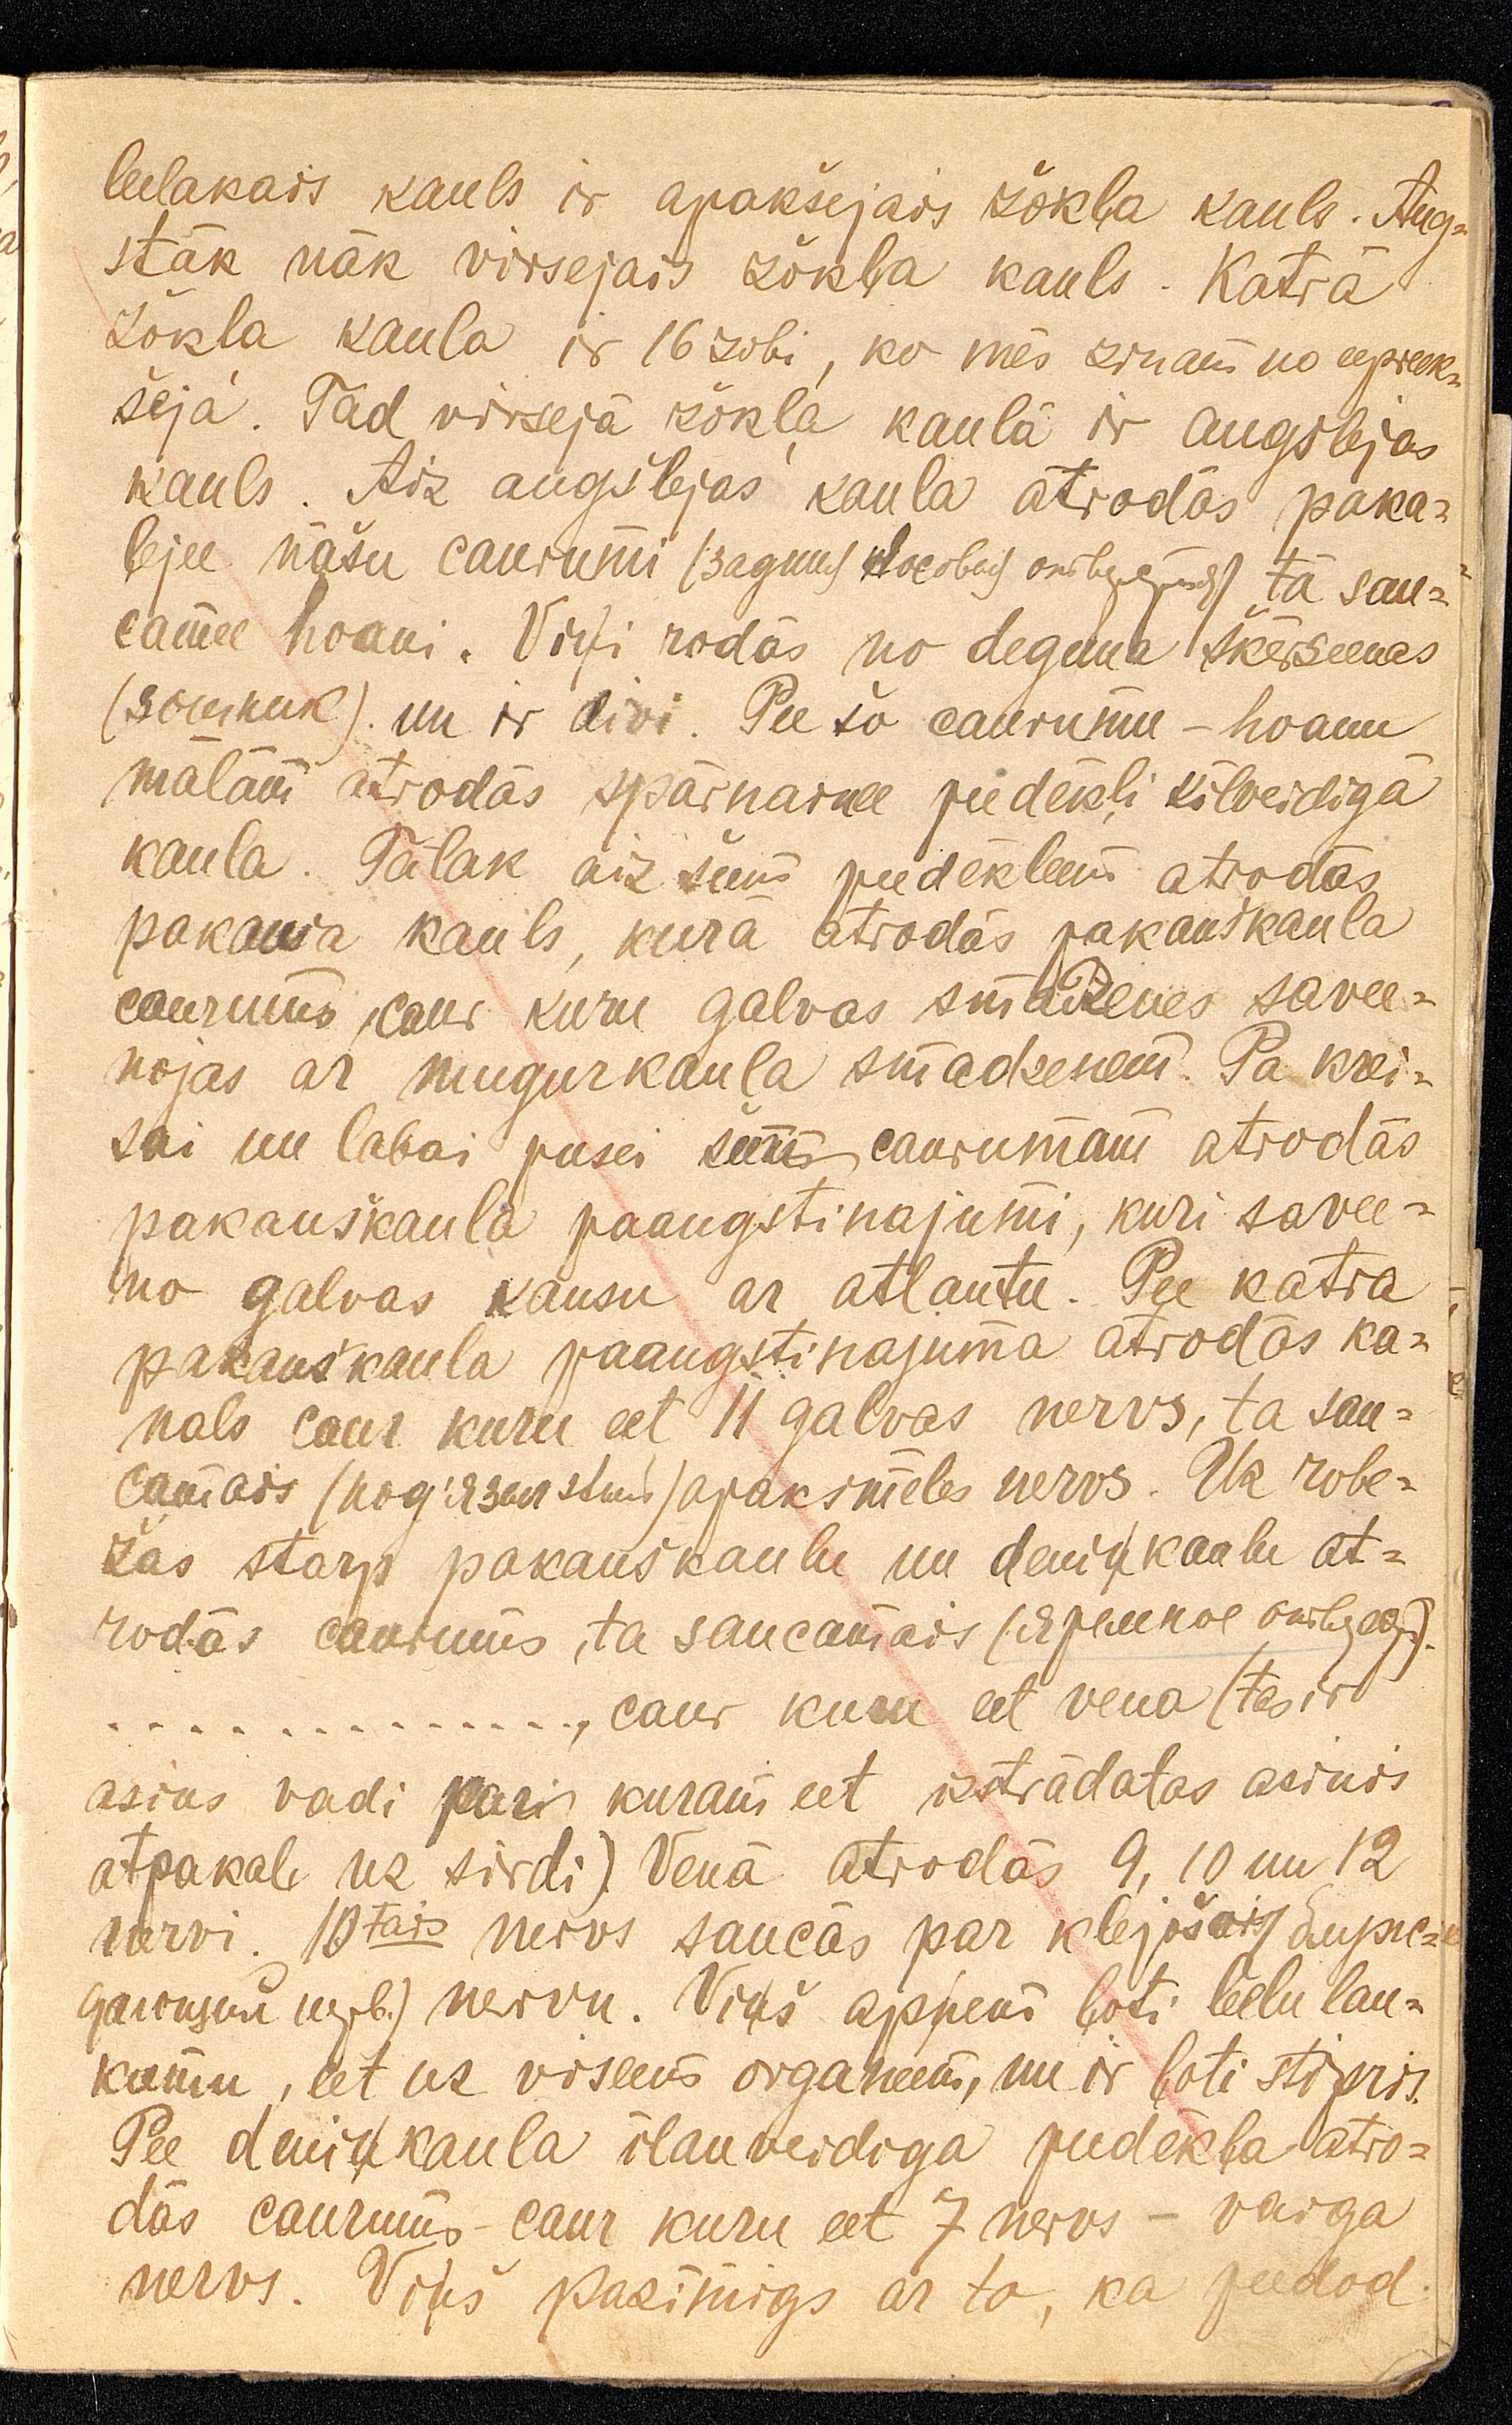 leelakais kauls ir apakšejais žokļa kauls. Aug=
stāk nāk virsejais žokļa kauls. Katrā
žokļa kaula ir 16 zobi, ko mēs zinam no eepreek=
šejā. Tad virsejā žokļa kaulā ir augšlejas
kauls. Aiz augšlejas kaula atrodās paka=
ļejee nāšu caurumi (задния носовыя отверстия) tā sau=
camee hoani. Viņi rodās no deguna šķērseenas
(зошник). un ir divi. Pee šo caurumu - hoanu
malām atrodās spārnainee peedēkļi ķīļveidigā
kaula. Tālak aiz šeem peedēkleem atrodās
pakauša kauls, kurā atrodās pakauškaula
caurums, caur kuru galvas smadzenes savee=
nojas ar mugurkaula smadzenem. Pa krei=
sai un labai pusei šim caurumam atrodās
pakauškaula paaugstinajumi, kuri savee=
no galvas kausu ar atlantu. Pee katra
pakauškaula paaugstinajuma atrodās ka=
nals caur kuru eet 11 galvas nervs, ta sau=
camais (подъязычный) apakšmēles nervs. Uz robe=
žas starp pakauškaulu un deniņkaulu at=
rodās caurums, ta saucamais (яремное отверст).
. . . . . . . . . . . . . . ., caur kuru eet vena (tas ir
asins vadi pa kuram eet izstrādatas asinis
atpakaļ uz sirdi). Venā atrodās 9, 10 un 12
nervi. 10tais nervs saucās par klejošais
nervu. Viņš apņem ļoti leelu lau=
kumu, eet uz viseem organeem, un ir ļoti stiprs.
Pee deniņkaula īlanveidiga peedēkļa atro=
dās caurums - caur kuru eet 7 nervs - vaiga
nervs. Viņš pazīmigs ar to, ka peedod